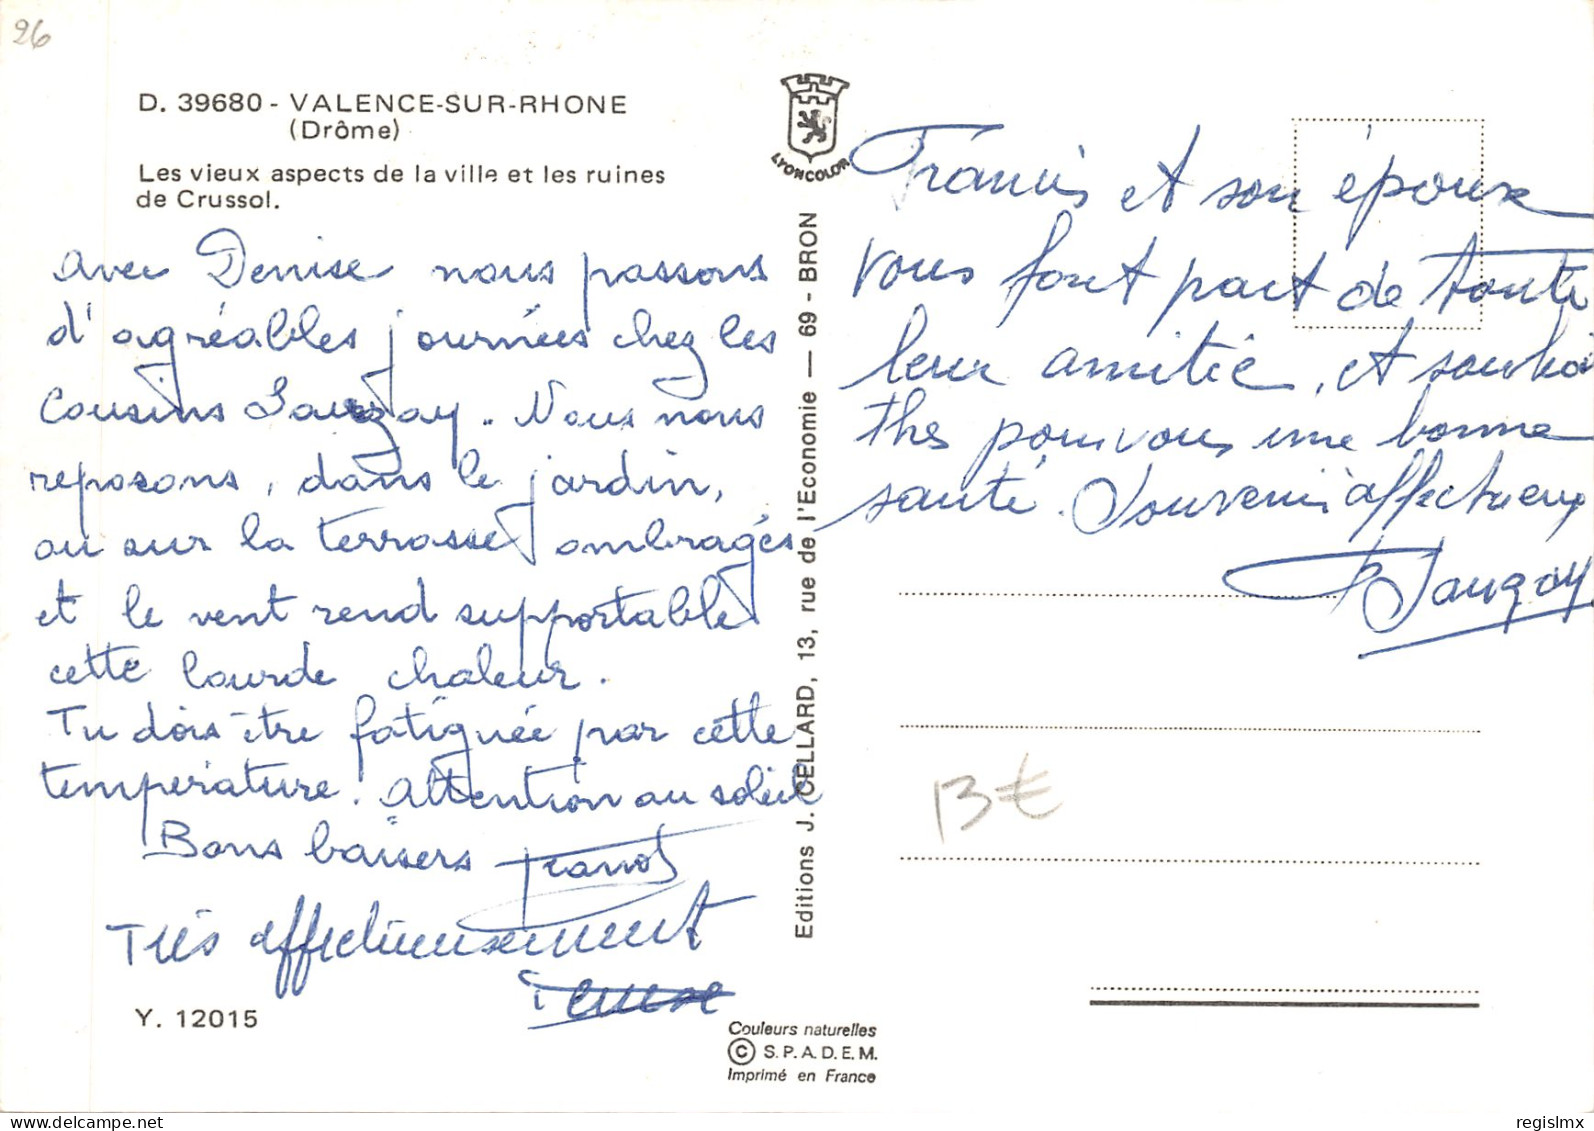 26
D. 39680 - VALENCE-SUR-RHONE
(Drôme)
Les vieux aspects de la ville et les ruines
de Crussol.
avec Denise nous passons
d'agréables journées chez les
Cousins Sauzay. Nous nous
reposons, dans le jardin,
ou sur la terrasse ombragés
et le vent rend supportable
cette lourde chaleur.
Tu dois être fatiguée par cette
température. Attention au soleil
Bons baisers
Très affectueusement
Denise
Y. 12015
LYONCOLOR
Editions J. CELLARD, 13, rue de l'Economie — 69 - BRON
Couleurs naturelles
© S.P.A.D.E.M.
Imprimé en France
Francis et son épouse
vous font part de toute
leur amitié, et souhai
thes pour vous une bonne
santé. Souvenirs affectueux
Sauzay
13 €
regislmx